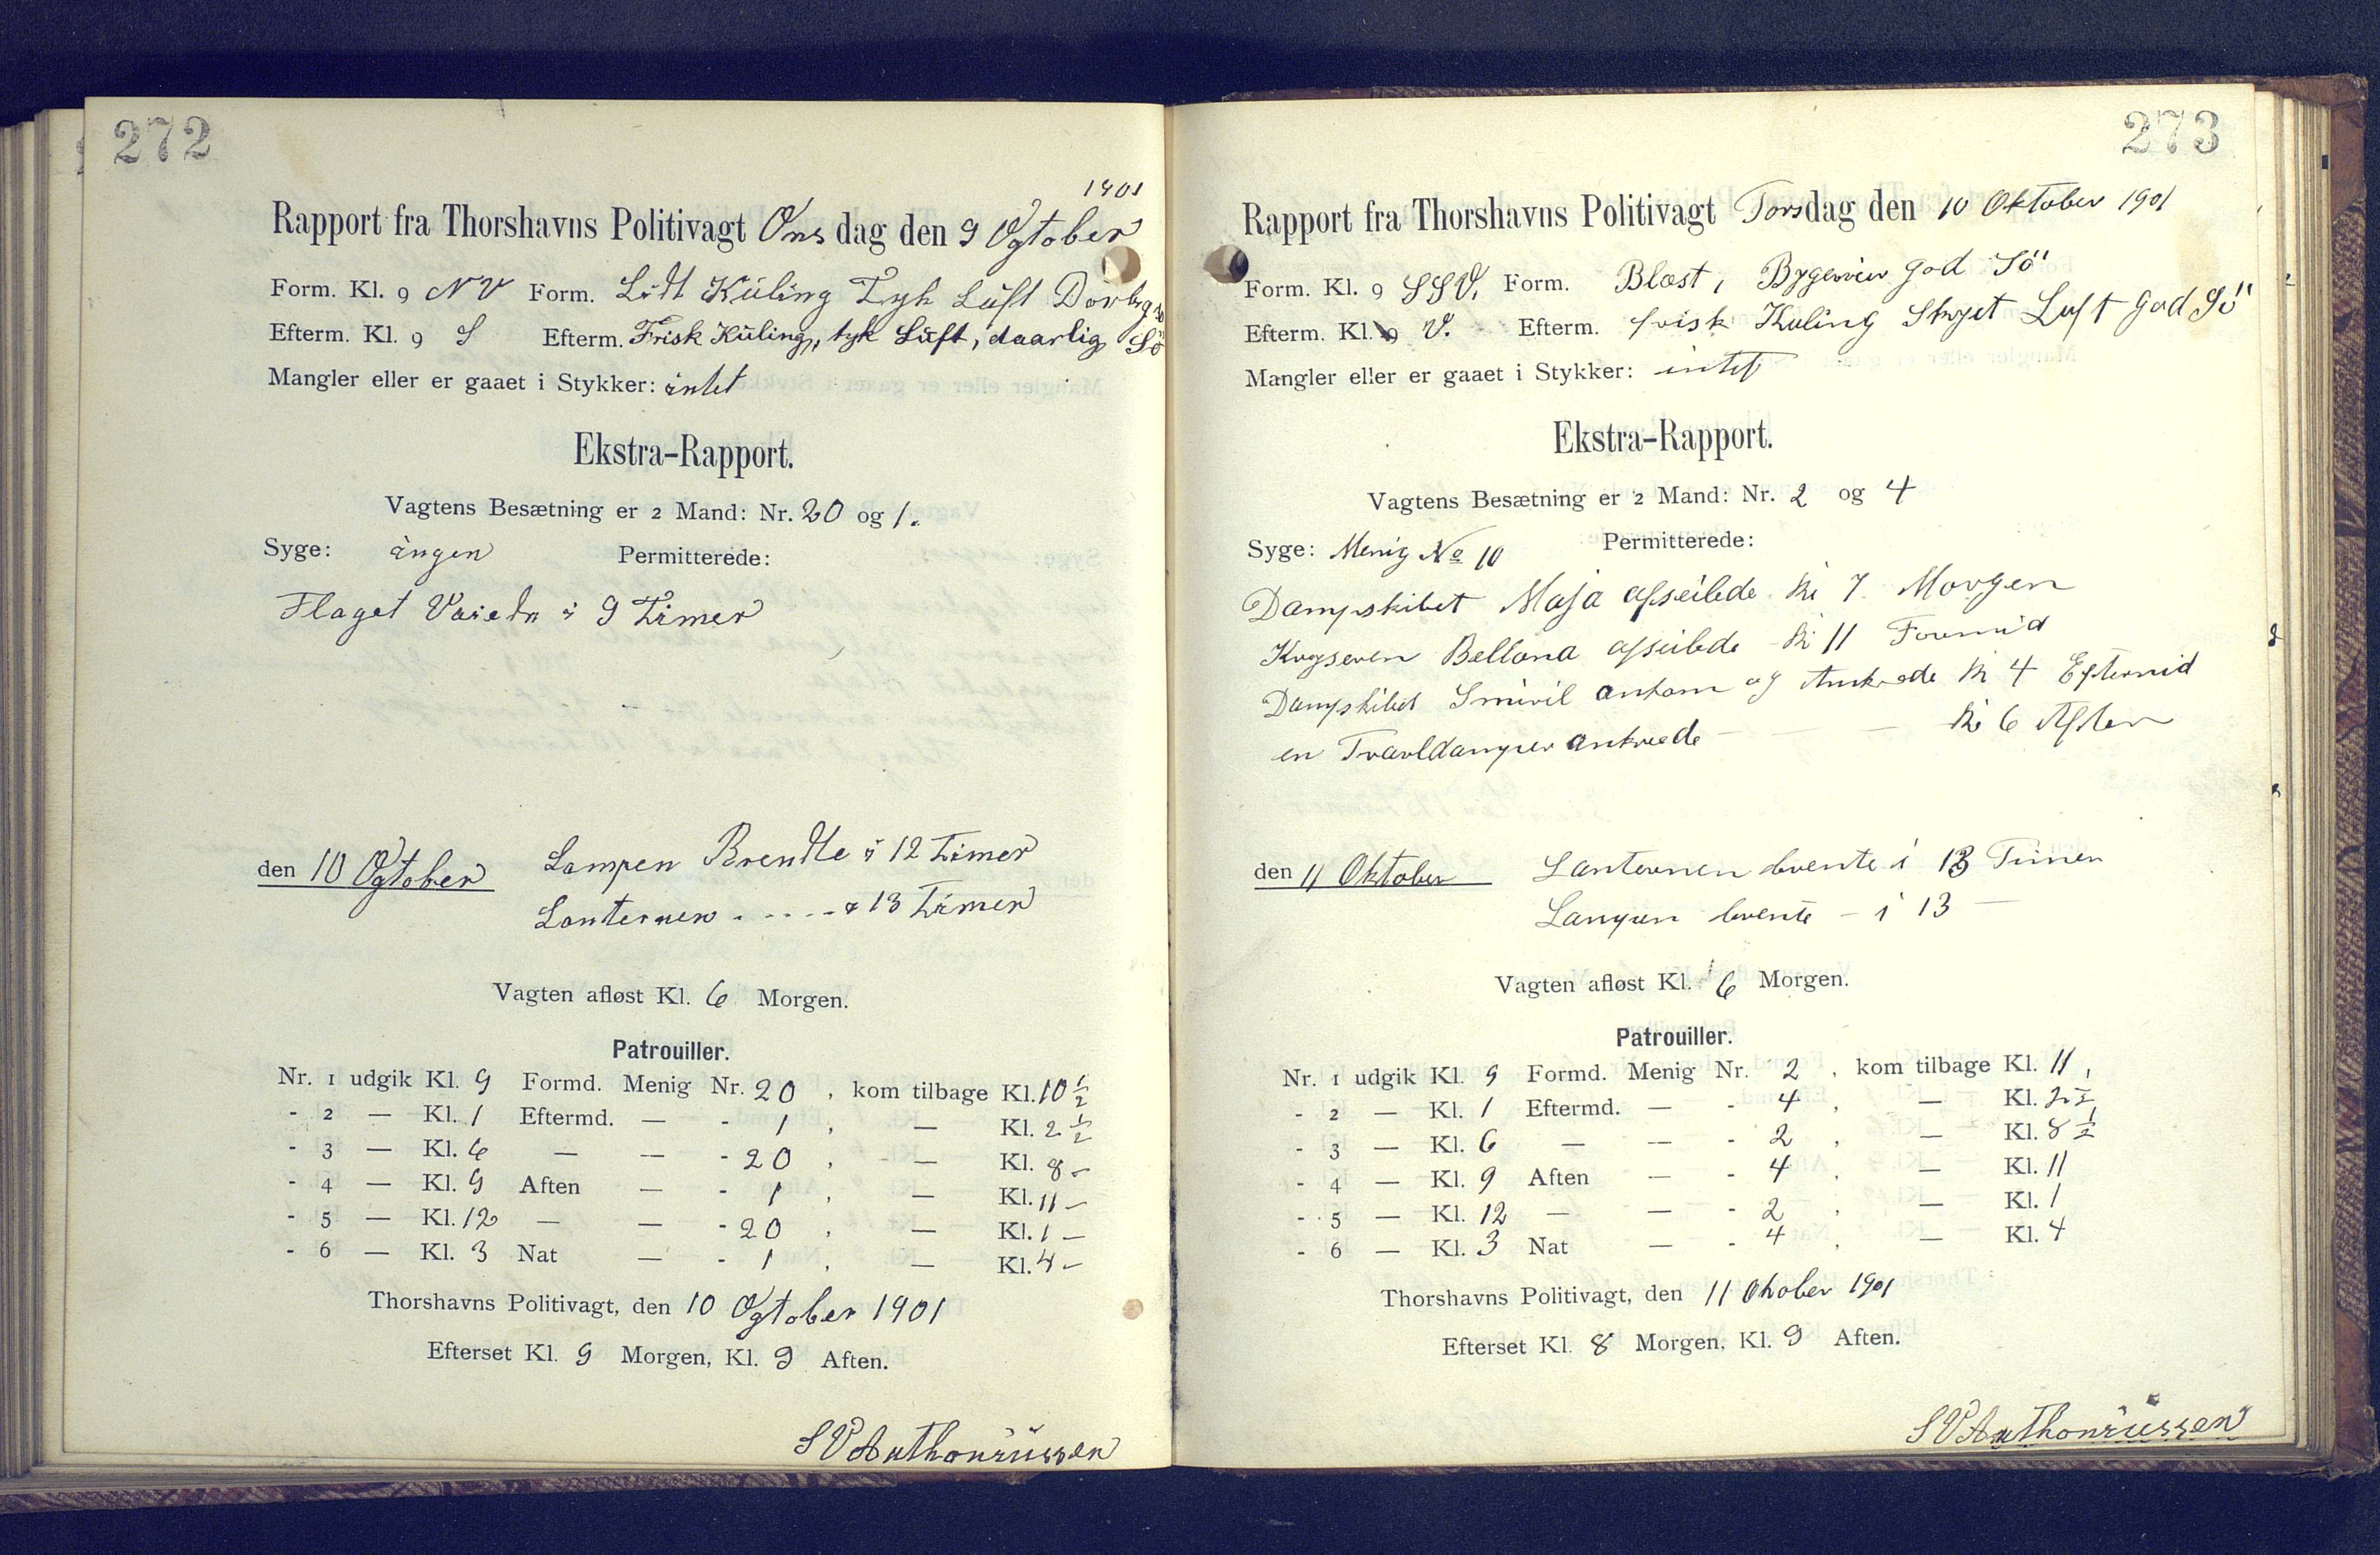 272
1901
Rapport fra Thorshavns Politivagt Onsdag den 9 Ogtober
Form. Kl. 9 NV Form. Lidt Küling Tyk Lüft
Efterm. Kl. 9 S Efterm. Frisk Küling, tyk Lüft, daarlig Sö
Mangler eller er gaaet i Stykker: intet
Ekstra-Rapport.
Vagtens Besætning er 2 Mand: Nr. 20 og 1.
Syge: ingen Permitterede:
Flaget Vaiede i 9 Timer
den 10 Ogtober Lampen Brendte i 12 Timer
Lanternen - - - - - i 13 Timer
Vagten afløst Kl. 6 Morgen.
Patrouiller.
Nr. 1 udgik Kl. 9 Formd. Menig Nr. 20, kom tilbage Kl. 10 1/2
- 2 — Kl. 1 Eftermd. — - 1, — Kl. 2 1/2
- 3 — Kl. 6 — — - 20, — Kl. 8 -
- 4 — Kl. 9 Aften — - 1, — Kl. 11 -
- 5 — Kl. 12 — — - 20, — Kl. 1 -
- 6 — Kl. 3 Nat — - 1, — Kl. 4 -
Thorshavns Politivagt, den 10 Ogtober 1901
Efterset Kl. 9 Morgen, Kl. 9 Aften.
SVAnthoniüssen
273
Rapport fra Thorshavns Politivagt Torsdag den 10 Oktober 1901
Form. Kl. 9 SSV, Form. Blæst, god Sö
Efterm. Kl. 9 V. Efterm. frisk Kuling Skyet Luft god Sö
Mangler eller er gaaet i Stykker: intet
Ekstra-Rapport.
Vagtens Besætning er 2 Mand: Nr. 2 og 4
Syge: Menig No 10 Permitterede:
Dampskibet Maja afseilede Kl 7 Morgen
Krysseren Bellona afseilede Kl 11 Formid
Dampskibet Smiril ankom og Ankrede Kl 4 Eftermid
en Travldamper ankrede — — Kl 6 Aften
den 11 Oktober Lanternen brente i 13 Timer
Lampen brente - i 13 —
Vagten afløst Kl. 6 Morgen.
Patrouiller.
Nr. 1 udgik Kl. 9 Formd. Menig Nr. 2, kom tilbage Kl. 11,
- 2 — Kl. 1 Eftermd. — - 4, — Kl. 2 1/2
- 3 — Kl. 6 — — - 2, — Kl. 8 1/2
- 4 — Kl. 9 Aften — - 4, — Kl. 11
- 5 — Kl. 12 — — - 2, — Kl. 1
- 6 — Kl. 3 Nat — - 4, — Kl. 4
Thorshavns Politivagt, den 11 Oktober 1901
Efterset Kl. 8 Morgen, Kl. 9 Aften.
SVAnthoniüssen